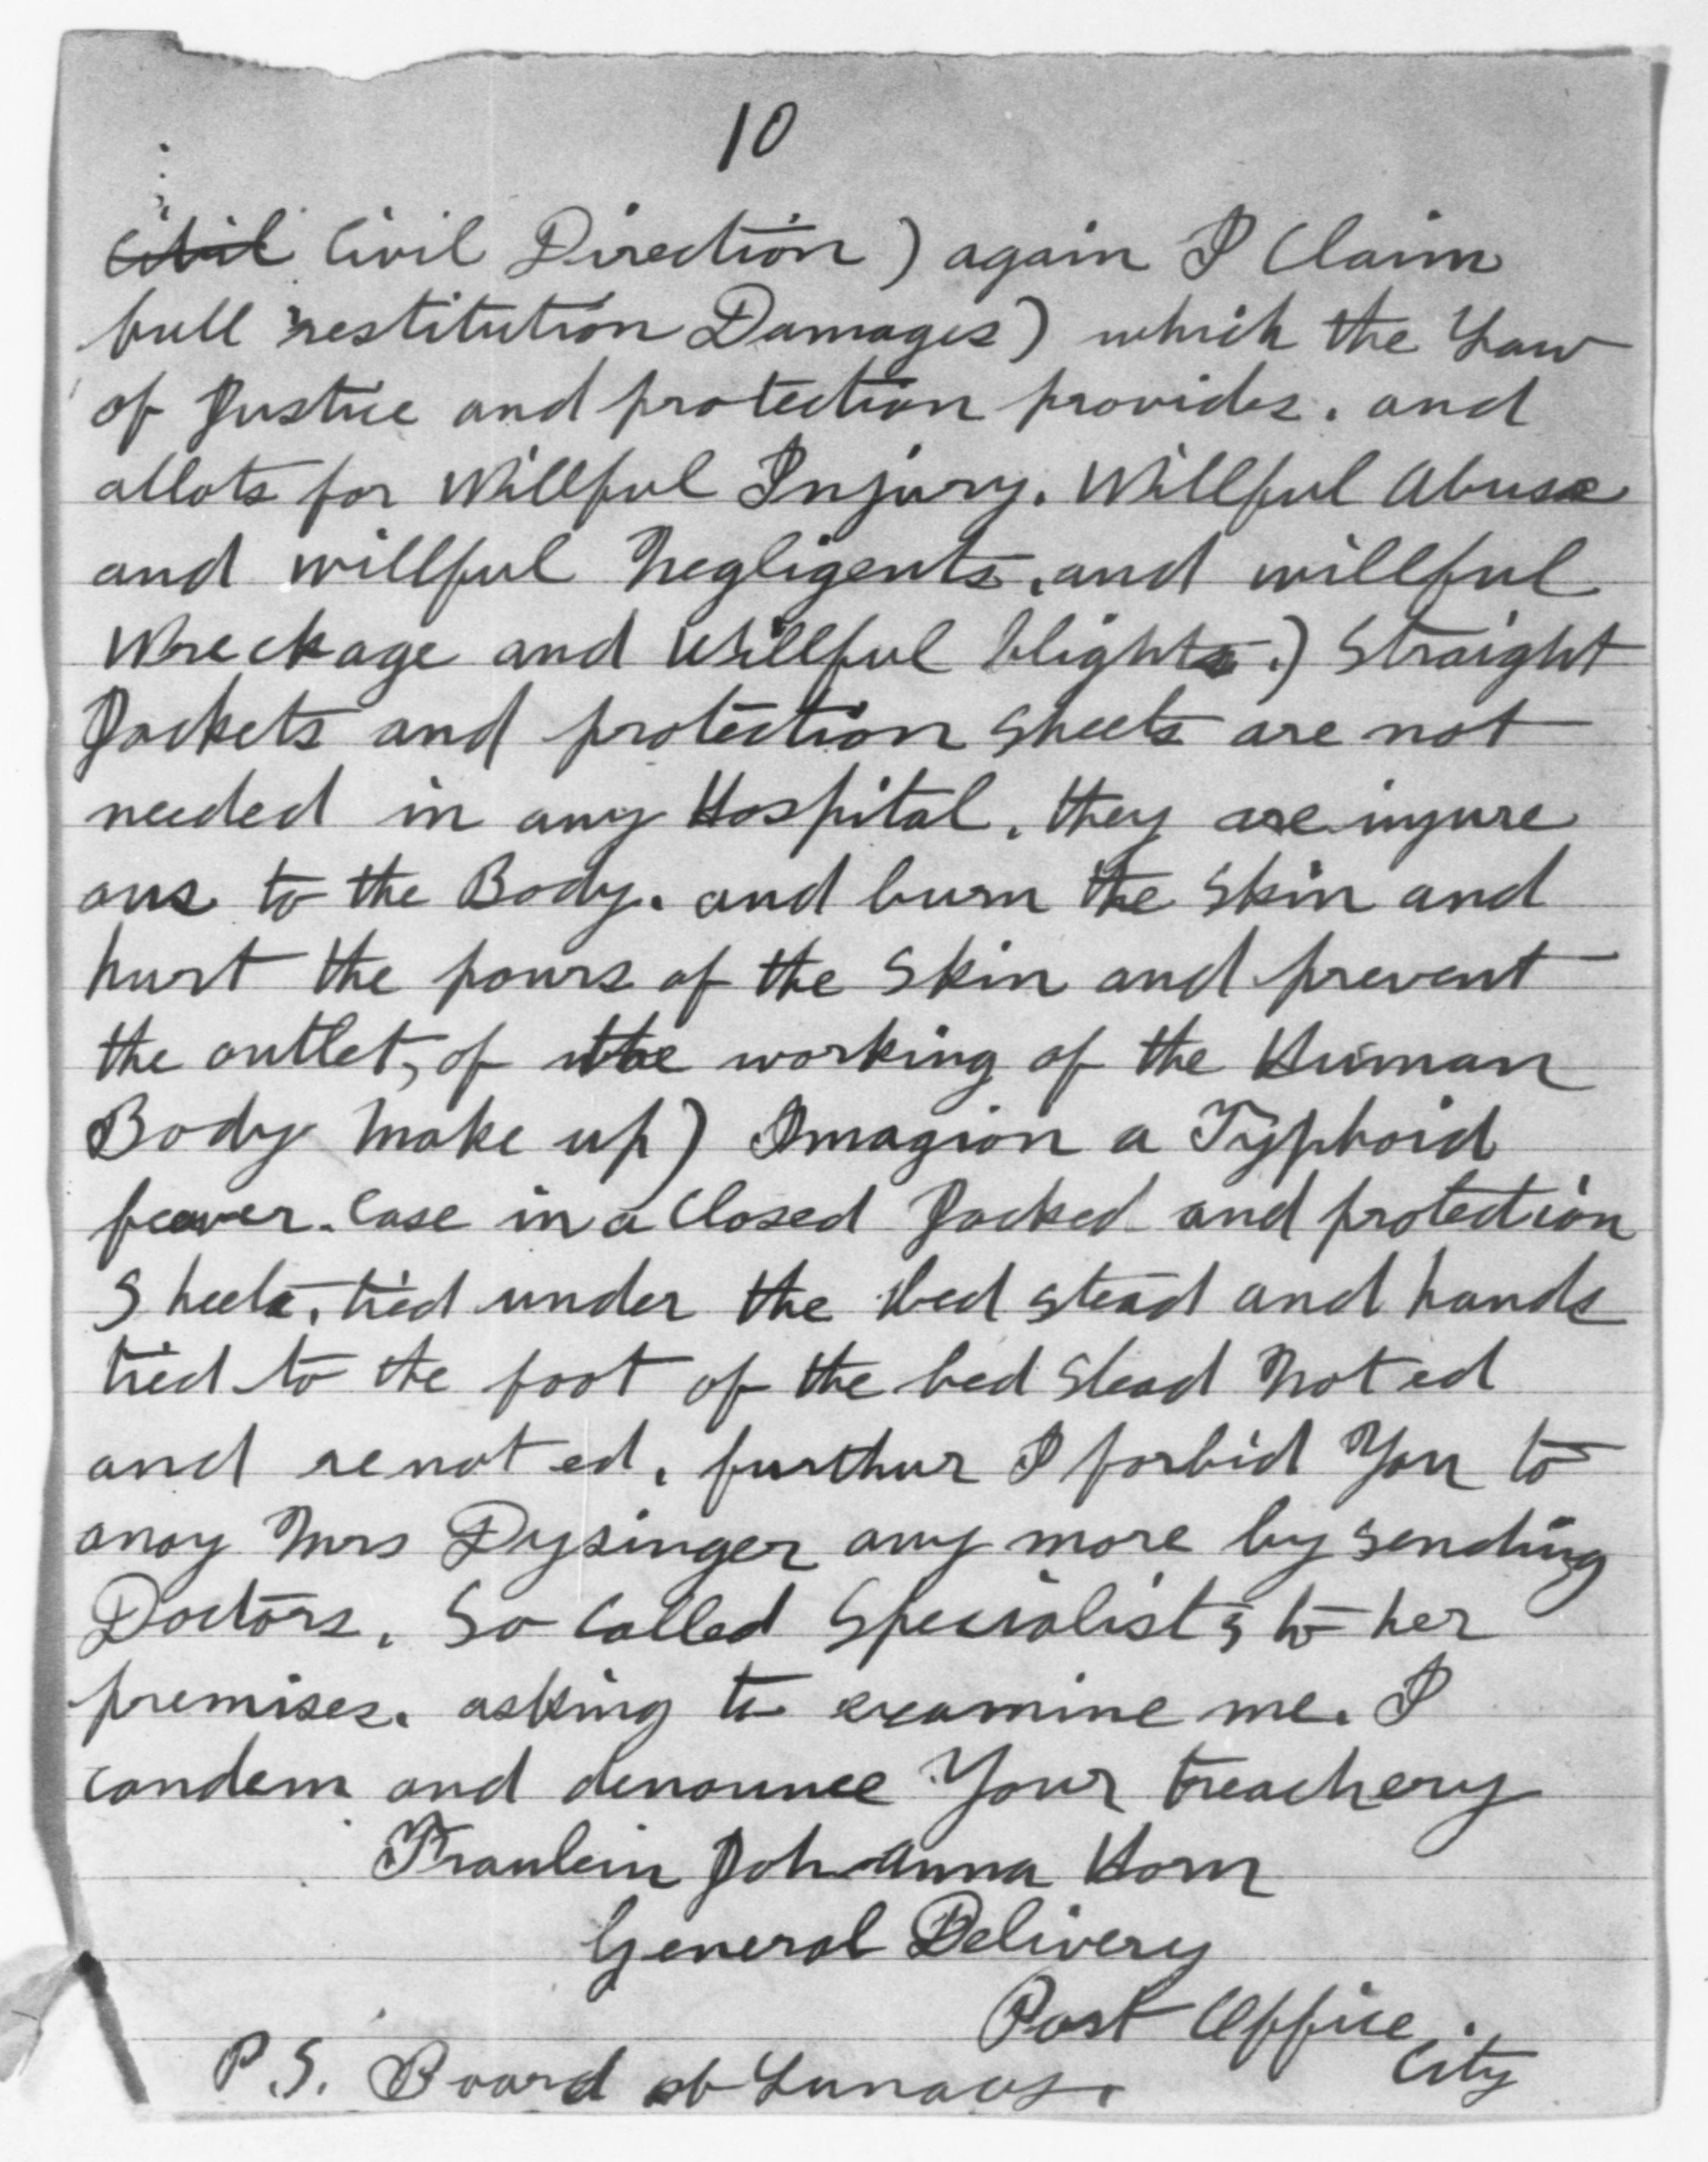 10
Civil Civil Direction) again I Claim
full restitution Damages) which the Law
of Justice and protection provides. and
allots for Willful Injury. Willful Abuse
and willful Negligents, and willful
Wreckage and Willful blights.) Straight
Jackets and protection sheets are not
needed in any Hospital. they are injure
ous to the Body. and burn the Skin and
hurt the pours of the Skin and prevent
the outlet, of the working of the Human
Body Make up) Imagion a Typhoid
feaver. Case in a Closed Jacked and protection
Sheets. tied under the bed stead and hands
tied to the foot of the bed stead Not ed
and renot ed. furthur I forbid You to
anoy Mrs Dysinger any more by sending
Doctors. So Called Specialists to her
premises. asking to examine me. I
condem and denounce Your treachery
Fraulein Johanna Horn
General Delivery
Post Office
City
P.S. Board of Lunacy.